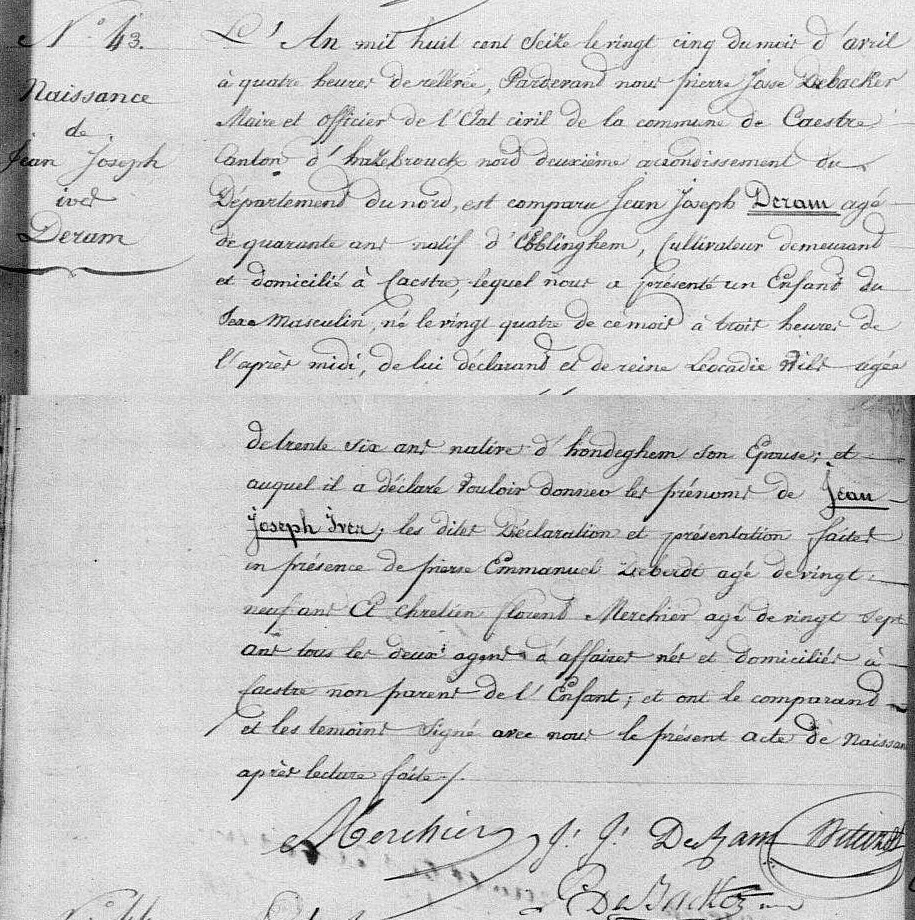 N.° 43.
Naissance
de
Jean Joseph
ives
Deram
L'An mil huit cent Seize le vingt cinq du mois d'avril
à quatre heures de relévée, Pardevand nous pierre Jose Debacker
Maire et officier de l'Etat civil de la commune de Caestre
Canton d'hazebrouck nord deuxiéme arrondissement du
Départemend du nord, est comparu Jean Joseph Deram agé
de quarante ans natif d'Ebblinghem, Cultivateur demeurand
et domicilié à Caestre, lequel nous a présenté un Enfand du
Sexe Masculin, né le vingt quatre de ce mois à trois heures de
l'après midi, de lui déclarand et de reine Leocadie agée
de trente six ans native d'hondeghem son Epouse; et
auquel il a déclaré vouloir donner les prénoms de Jean
Joseph Ives; les dites Déclaration et présentation faites
en présence de pierre Emmanuel agé de vingt
neuf ans Et chretien florend Merchier agé de vingt Sept
ans tous les deux agens d'affaires nés et domiciliés à
Caestre non parens de l'Enfant; et ont le comparand
et les temoins Signé avec nous le présent acte de Naissan
après lecture faite ./.
Merchier J. J. DeRam
DeBacker